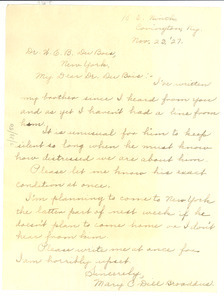 Covington Ky.
Nov. 22, '27.
Dr. W. E. B. Du Bois,
New York,
My Dear Dr. Du Bois:-
I've written
my brother since I heard from you
and as yet I haven't had a line from
him.
It is unusual for him to keep
silent so long when he must know
how distressed we are about him.
Please let me know his exact
condition at once.
I'm planning to come to New York
the latter part of next week if he
doesn't plan to come home or I don't
hear from him.
Please write me at once for
I am horribly upset.
Sincerely,
Mary C. Dill Broaddus